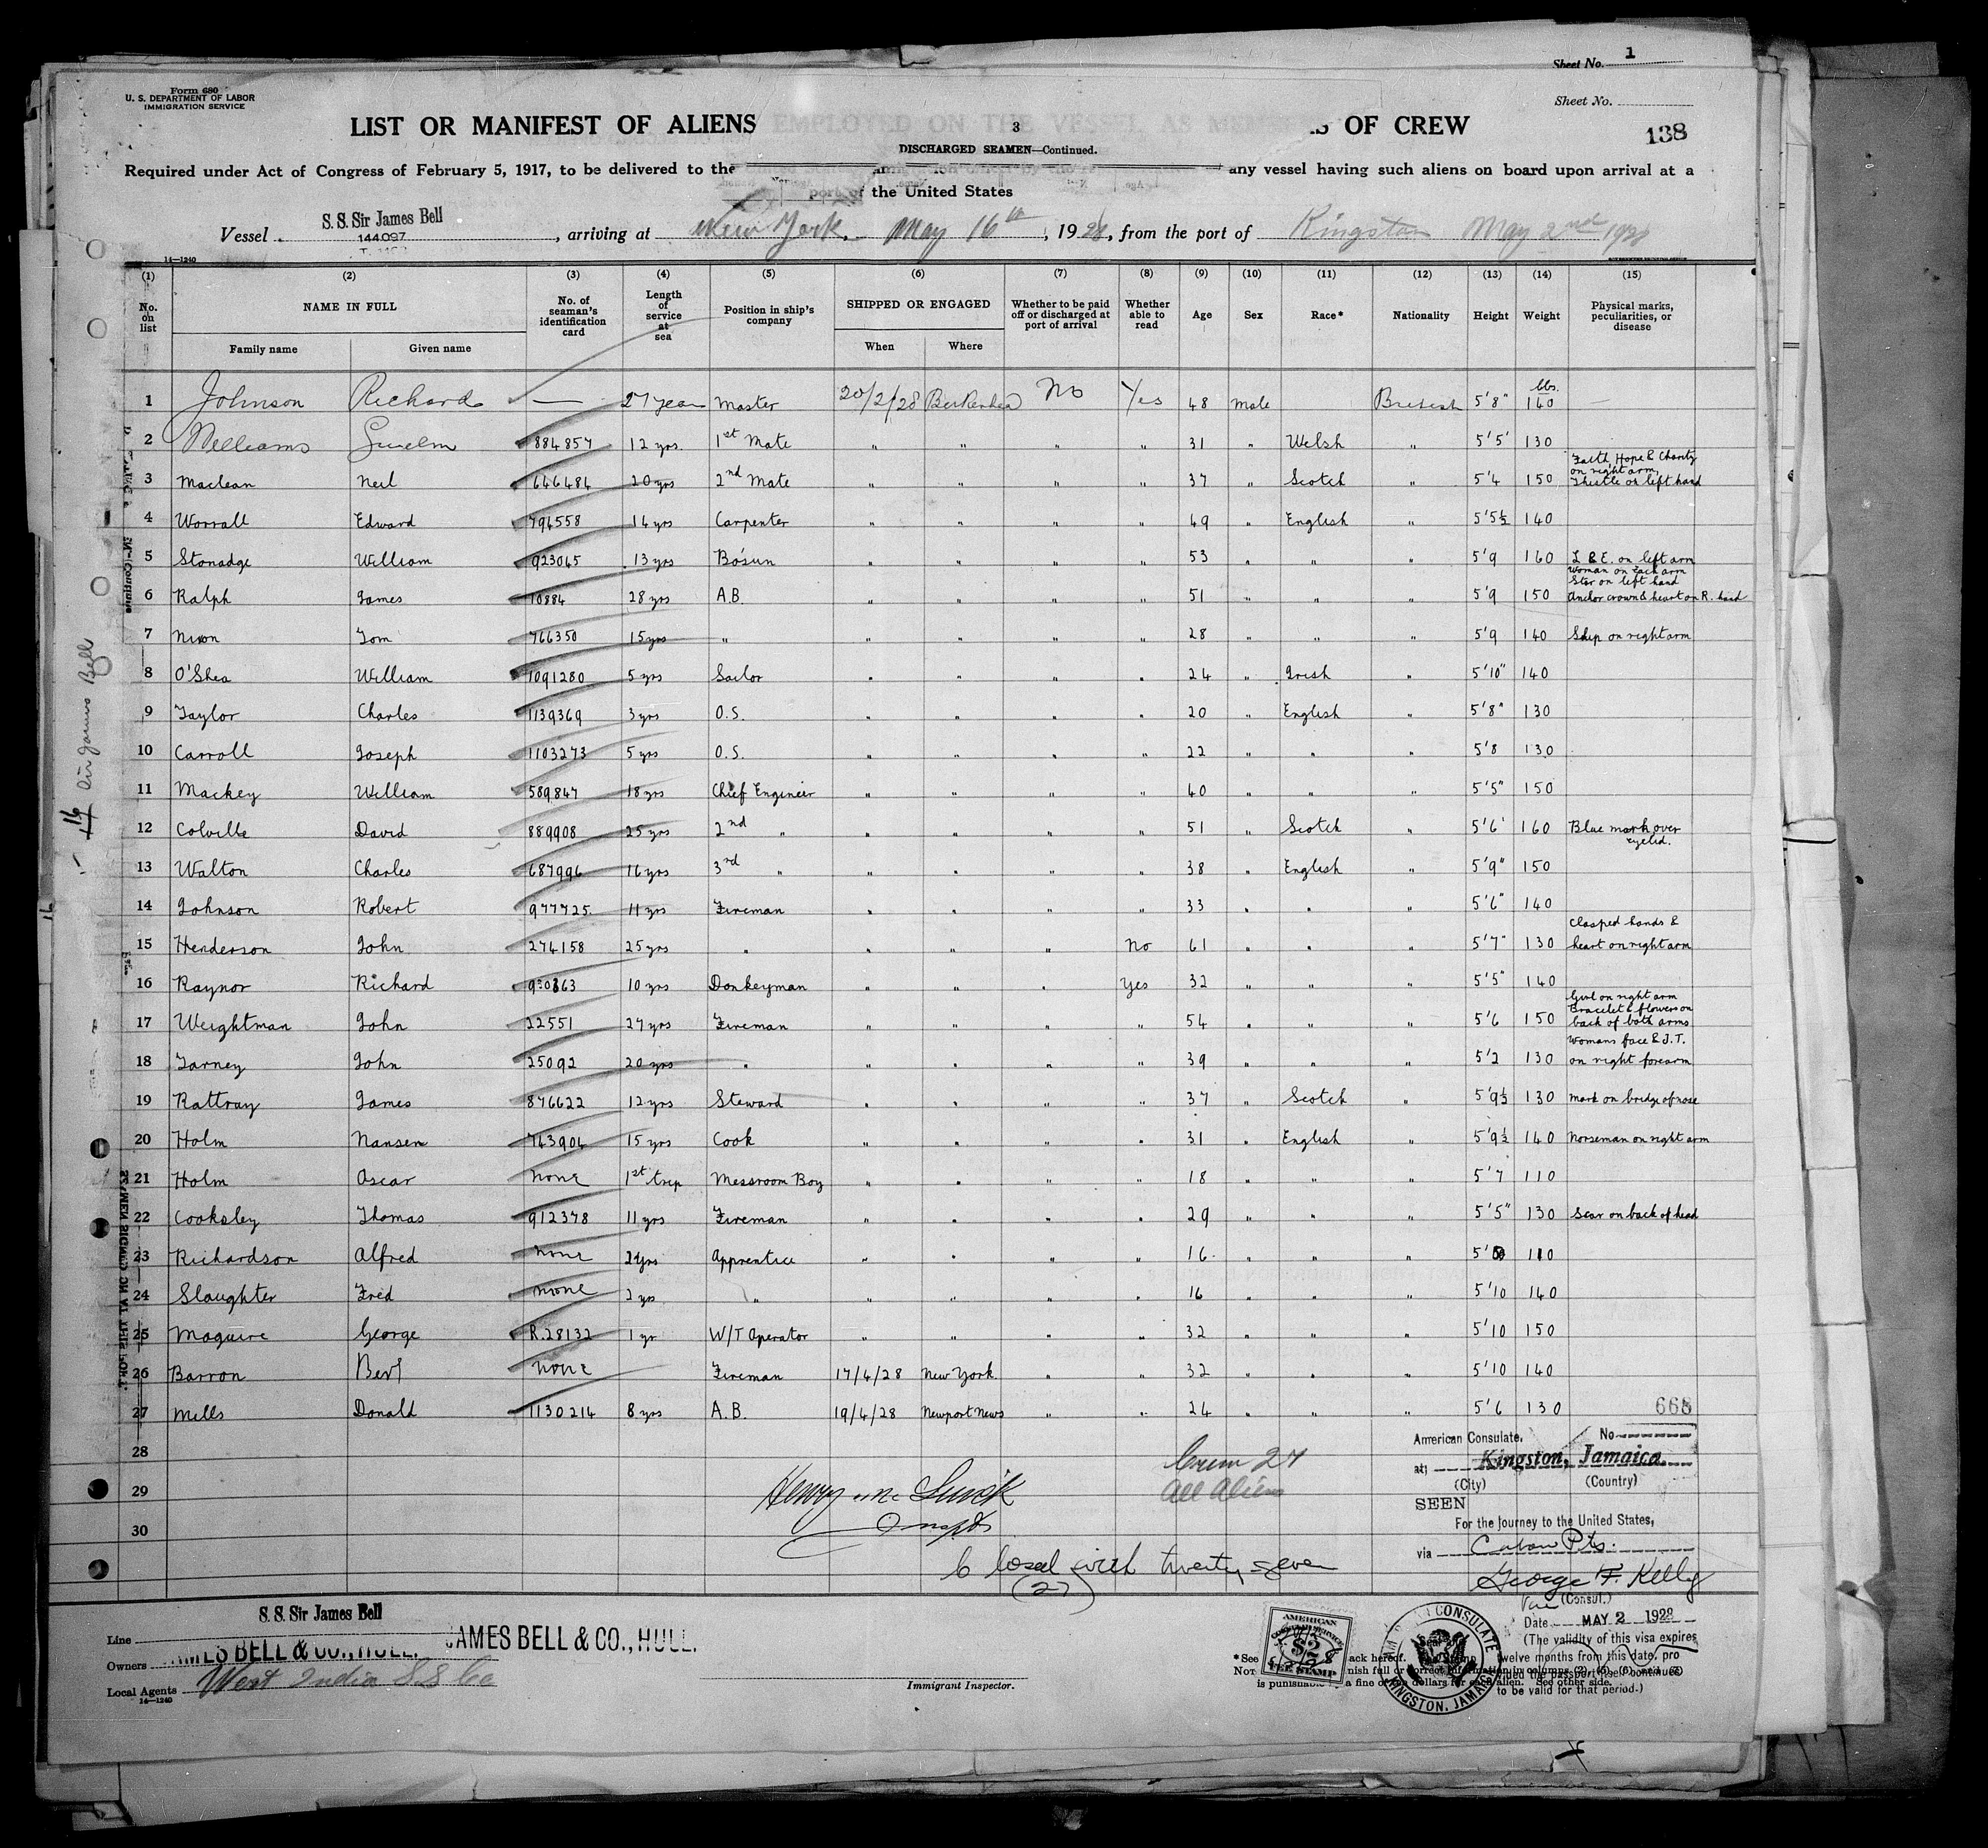 Sheet No. 1
Form 680
U. S. DEPARTMENT OF LABOR
IMMIGRATION SERVICE
Sheet No.
138
LIST OR MANIFEST OF ALIENS EMPLOYED ON THE VESSEL AS OF CREW
3
DISCHARGED SEAMEN—Continued.
Required under Act of Congress of February 5, 1917, to be delivered to the any vessel having such aliens on board upon arrival at a
port of the United States
Vessel S. S. Sir James Bell , arriving at New York. May 16th , 1928, from the port of Kingston May 2nd 1928
144097
14—1240
(1) (2) (3) (4) (5) (6) (7) (8) (9) (10) (11) (12) (13) (14) (15)
No. on list NAME IN FULL No. of seaman's identification card Length of service at sea Position in ship's company SHIPPED OR ENGAGED Whether to be paid off or discharged at port of arrival Whether able to read Age Sex Race* Nationality Height Weight Physical marks, peculiarities, or disease
Family name Given name When Where
1 Johnson Richard — 27 years Master 20/2/28 Birkenhead No Yes 48 Male British 5'8" lbs. 140 —
2 Williams 884857 12 yrs. 1st Mate " " " " 31 " Welsh " 5'5' 130
3 Maclean Neil 646484 20 yrs 2nd Mate " " " " 37 " Scotch " 5'4 150 Faith, Hope & Charity on right arm, Thistle on left hand
4 Worrall Edward 794558 14 yrs Carpenter " " " " 49 " English " 5'5½ 140
5 Stonadge William 923045 13 yrs Bo'sun " " " " 53 " " " 5'9 160 L & E. on left arm
6 Ralph James 10884 28 yrs A.B. " " " " 51 " " " 5'9 150 Woman on each arm Star on left hand Anchor crown & heart on R. hand
7 Nixon Tom 766350 15 yrs " " " " " 28 " " " 5'9 140 Ship on right arm
8 O'Shea William 1091280 5 yrs Sailor " " " " 24 " Irish " 5'10" 140
9 Taylor Charles 1139369 3 yrs O.S. " " " " 20 " English " 5'8" 130
10 Carroll Joseph 1103273 5 yrs O.S. " " " " 22 " " " 5'8 130
11 Mackey William 589847 18 yrs Chief Engineer " " " " 40 " " " 5'5" 150
12 Colville David 889908 25 yrs 2nd " " " " " 51 " Scotch " 5'6' 160 Blue mark over eyelid.
13 Walton Charles 687996 16 yrs 3rd " " " " " 38 " English " 5'9" 150
14 Johnson Robert 977725 11 yrs Fireman " " " " 33 " " " 5'6" 140
15 Henderson John 274158 25 yrs " " " " No 61 " " " 5'7" 130 Clasped hands & heart on right arm
16 Raynor Richard 920363 10 yrs Donkeyman " " " Yes 32 " " " 5'5" 140
17 Weightman John 22551 27 yrs Fireman " " " " 54 " " " 5'6 150 Girl on right arm Bracelet & flowers on back of both arms
18 Tarney John 25092 20 yrs " " " " " 39 " " " 5'2 130 Womans face & J.T. on right forearm
19 Rattray James 876622 12 yrs Steward " " " " 37 " Scotch " 5'9½ 130 Mark on bridge of nose
20 Holm Nansen 743904 15 yrs Cook " " " " 31 " English " 5'9½ 140 Norseman on right arm
21 Holm Oscar None 1st trip Messroom Boy " " " " 18 " " " 5'7 110
22 Cooksley Thomas 912378 11 yrs Fireman " " " " 29 " " " 5'5" 130 Scar on back of head
23 Richardson Alfred None 2 yrs Apprentice " " " " 16 " " " 110
24 Slaughter Fred None 2 yrs " " " " " 16 " " " 5'10 140
25 Maguire George R.28132 1 yr W/T Operator " " " " 32 " " " 5'10 150
26 Barron Bert None Fireman 17/4/28 New York " " 32 " " " 5'10 140
27 Mills Donald 1130214 8 yrs A.B. 19/4/28 Newport News " " 24 " " " 5'6 130
28
29
30
668
American Consulate, No
at Kingston, Jamaica.
(City) (Country)
SEEN
For the journey to the United States,
via Cuban Pts.
George F. Kelly
Vice (Consul.)
Date MAY 2 1928
(The validity of this visa expires
twelve months from this date, pro
vided the passport itself continues
to be valid for that period.)
Crew 27
All Aliens
Closed with twenty seven
(27)
Sir James Bell
S. S. Sir James Bell
Line
Owners JAMES BELL & CO., HULL. JAMES BELL & CO., HULL.
Local Agents West India S S Co
14—1240
Immigrant Inspector.
AMERICAN
CONSULAR SERVICE
$2
FEE STAMP
AMERICAN CONSULATE
KINGSTON, JAMAICA
*See back hereof.
is punishable a fine of ten dollars for each alien. See other side.